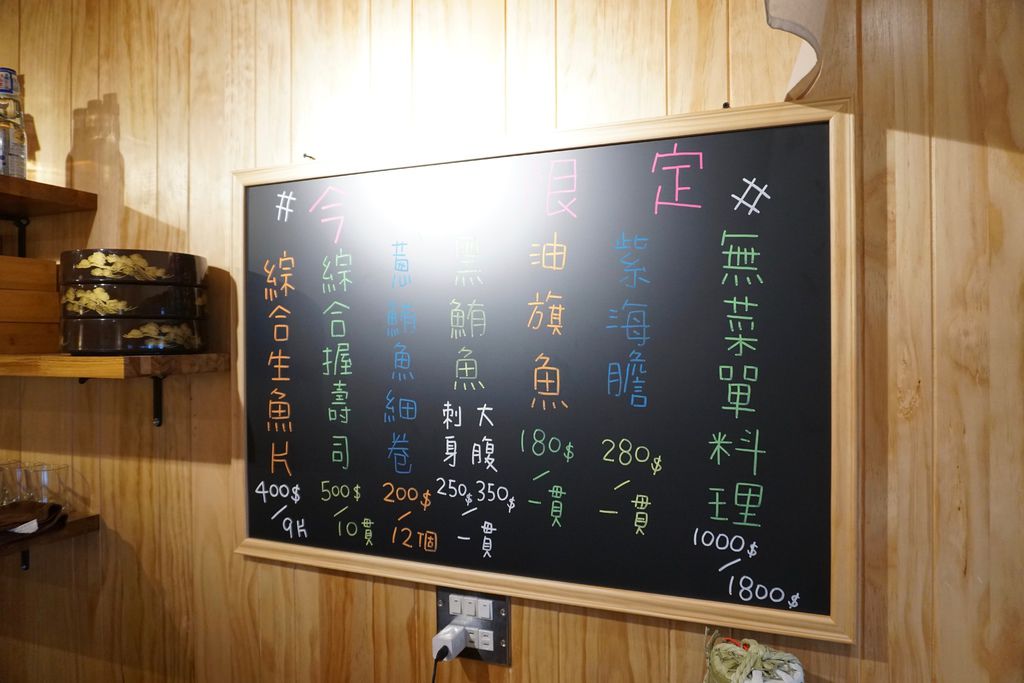 #今 限定#
無菜單料理
1000$/1800$
紫海膽
280$/一貫
油旗魚
180$/一貫
黑鮪魚
大腹
刺身
250$ 350$/一貫
蔥鮪魚細卷
200$/12個
綜合握壽司
500$/10貫
綜合生魚片
400$/9片